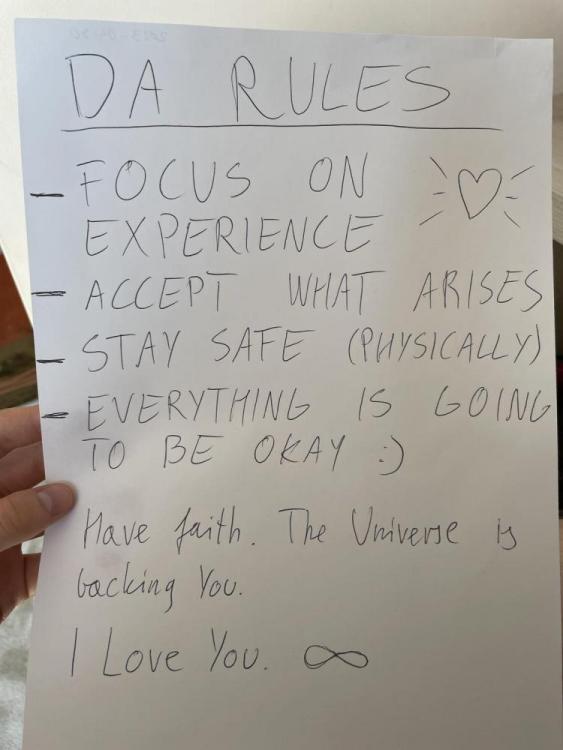 DA RULES
- FOCUS ON
EXPERIENCE
- ACCEPT WHAT ARISES
- STAY SAFE (PHYSICALLY)
- EVERYTHING IS GOING
TO BE OKAY :)
Have faith. The Universe is
backing You.
I Love You. ∞